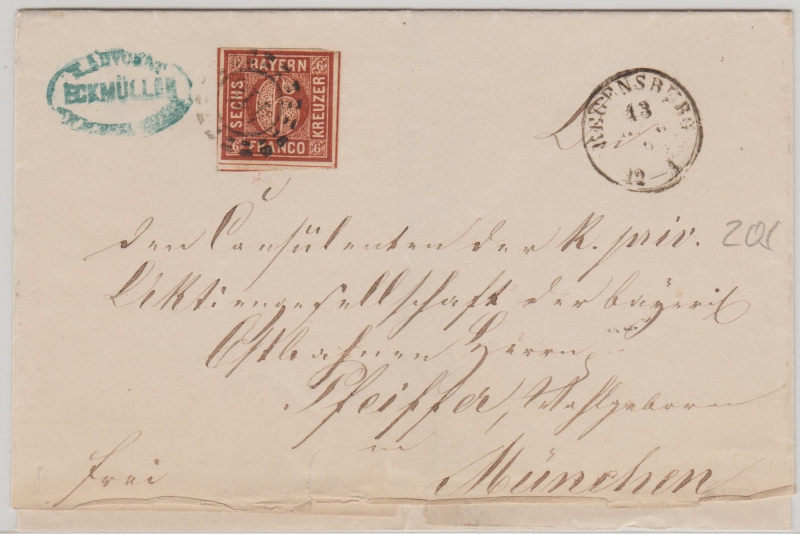 ADVOCAT
ECKMÜLLER
BAYERN
SECHS
KREUZER
FRANCO
6 6 6 6
6
REGENSBURG
13
12–1
den Consulenten der K. priv.
Aktiengesellschaft der bayeris
Ostbahnen Herrn
Pfeiffer, Wohlgeboren
in
frei
München